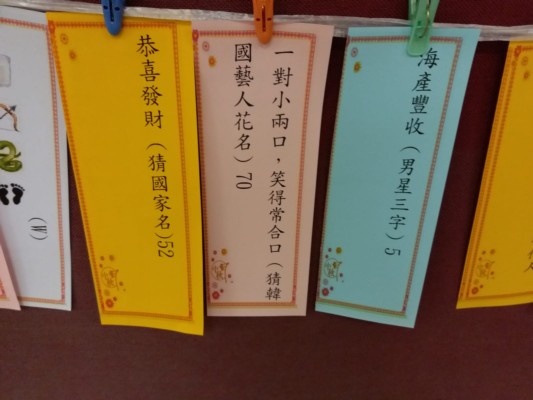 海產豐收（男星三字）5
一對小兩口，笑得常合口（猜韓
國藝人花名）70
恭喜發財（猜國家名）52
（W）